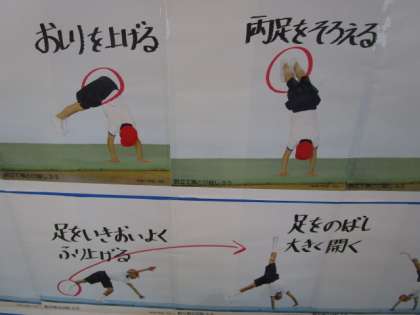 おしりを上げる
両足をそろえる
足をいきおいよく
ふり上げる
足をのばし
大きく開く